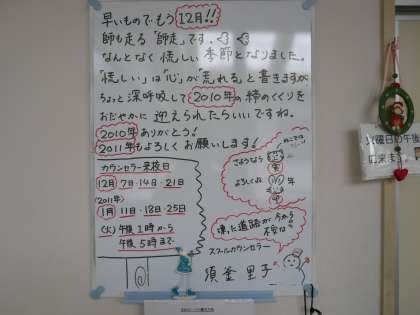 早いもので、もう12月!!
師も走る「師走」です。
なんとなく慌しい季節となりました。
「慌しい」は「心」が「荒れる」と書きますが
ちょっと深呼吸して2010年の締めくくりを
おだやかに迎えられたらいいですね。
2010年ありがとう!
2011年もよろしくお願いします!
カウンセラー来校日
12月 7日・14日・21日
(2011年)
1月 11日・18日・25日
(火) 午後1時から
午後5時まで
さようなら
よろしくね
年
凍った道路が今から
不安な
スクールカウンセラー
須釜 里子
火曜日の午後